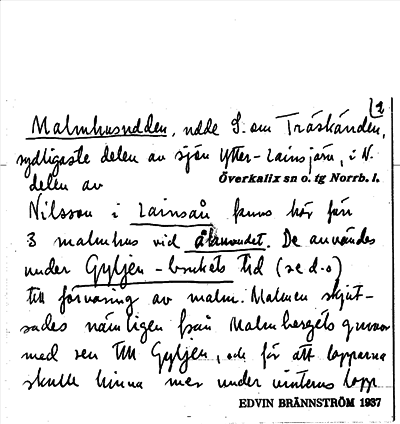 (2
Malmhusudden, udde S. om Träskänden,
sydligaste delen av sjön Ytter-Lainsjärv, i N.
delen av Överkalix sn o. tg Norrb. l.
Nilsson i Lainsån fanns här förr
3 malmhus vid åkanvudet. De användes
under Gyljen-brukets tid (se d.o)
till förvaring av malm. Malmen skjut-
sades nämligen från Malmbergets gruvor
med ren till Gyljen, och för att lapparna
skulle hinna mer under vinterns lopp
EDVIN BRÄNNSTRÖM 1937